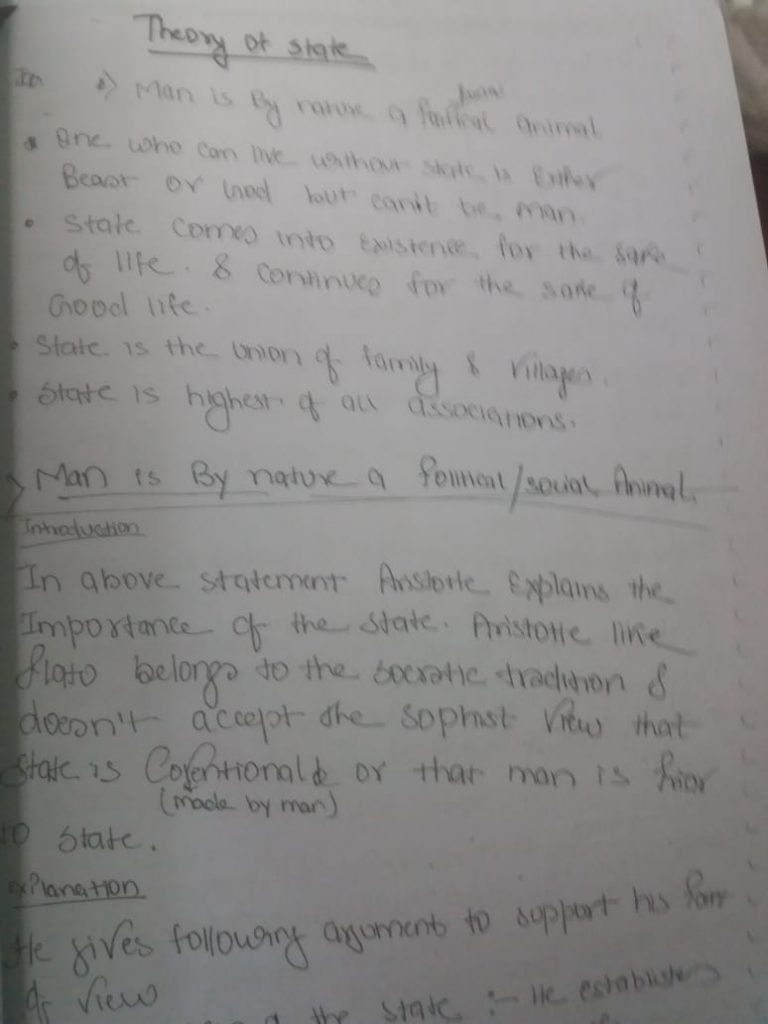 Theory of state
In 1) Man is By nature a political social Animal
• One who can live without state is Either
Beast or God but can't be man.
• State comes into Existence for the sake
of life. & continues for the sake of
Good life.
• State is the union of family & villages.
• State is highest of all associations.
> Man is By nature a Political/social Animal.
Introduction
In above statement Aristotle Explains the
Importance of the state. Aristotle like
Plato belongs to the socratic tradition &
doesn't accept the sophist View that
State is or that man is Prior
(made by man)
to State.
explanation
He gives following argument to support his
of view
the state :- He establishes